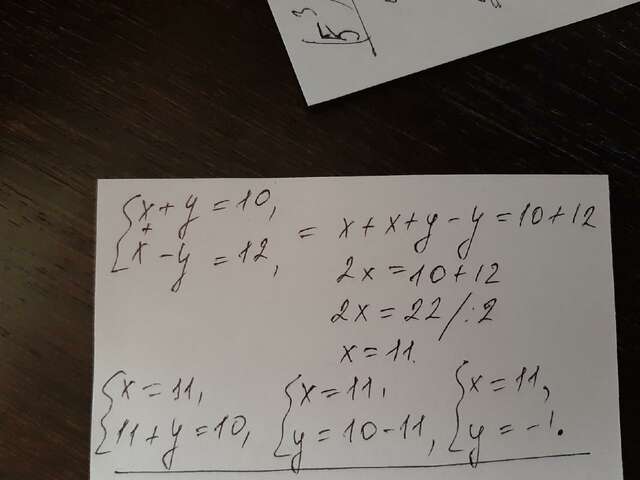 x + y = 10,
+
x - y = 12,
= x + x + y - y = 10 + 12
2x = 10 + 12
2x = 22 /:2
x = 11.
x = 11,
11 + y = 10,
x = 11,
y = 10 - 11,
x = 11,
y = -1.